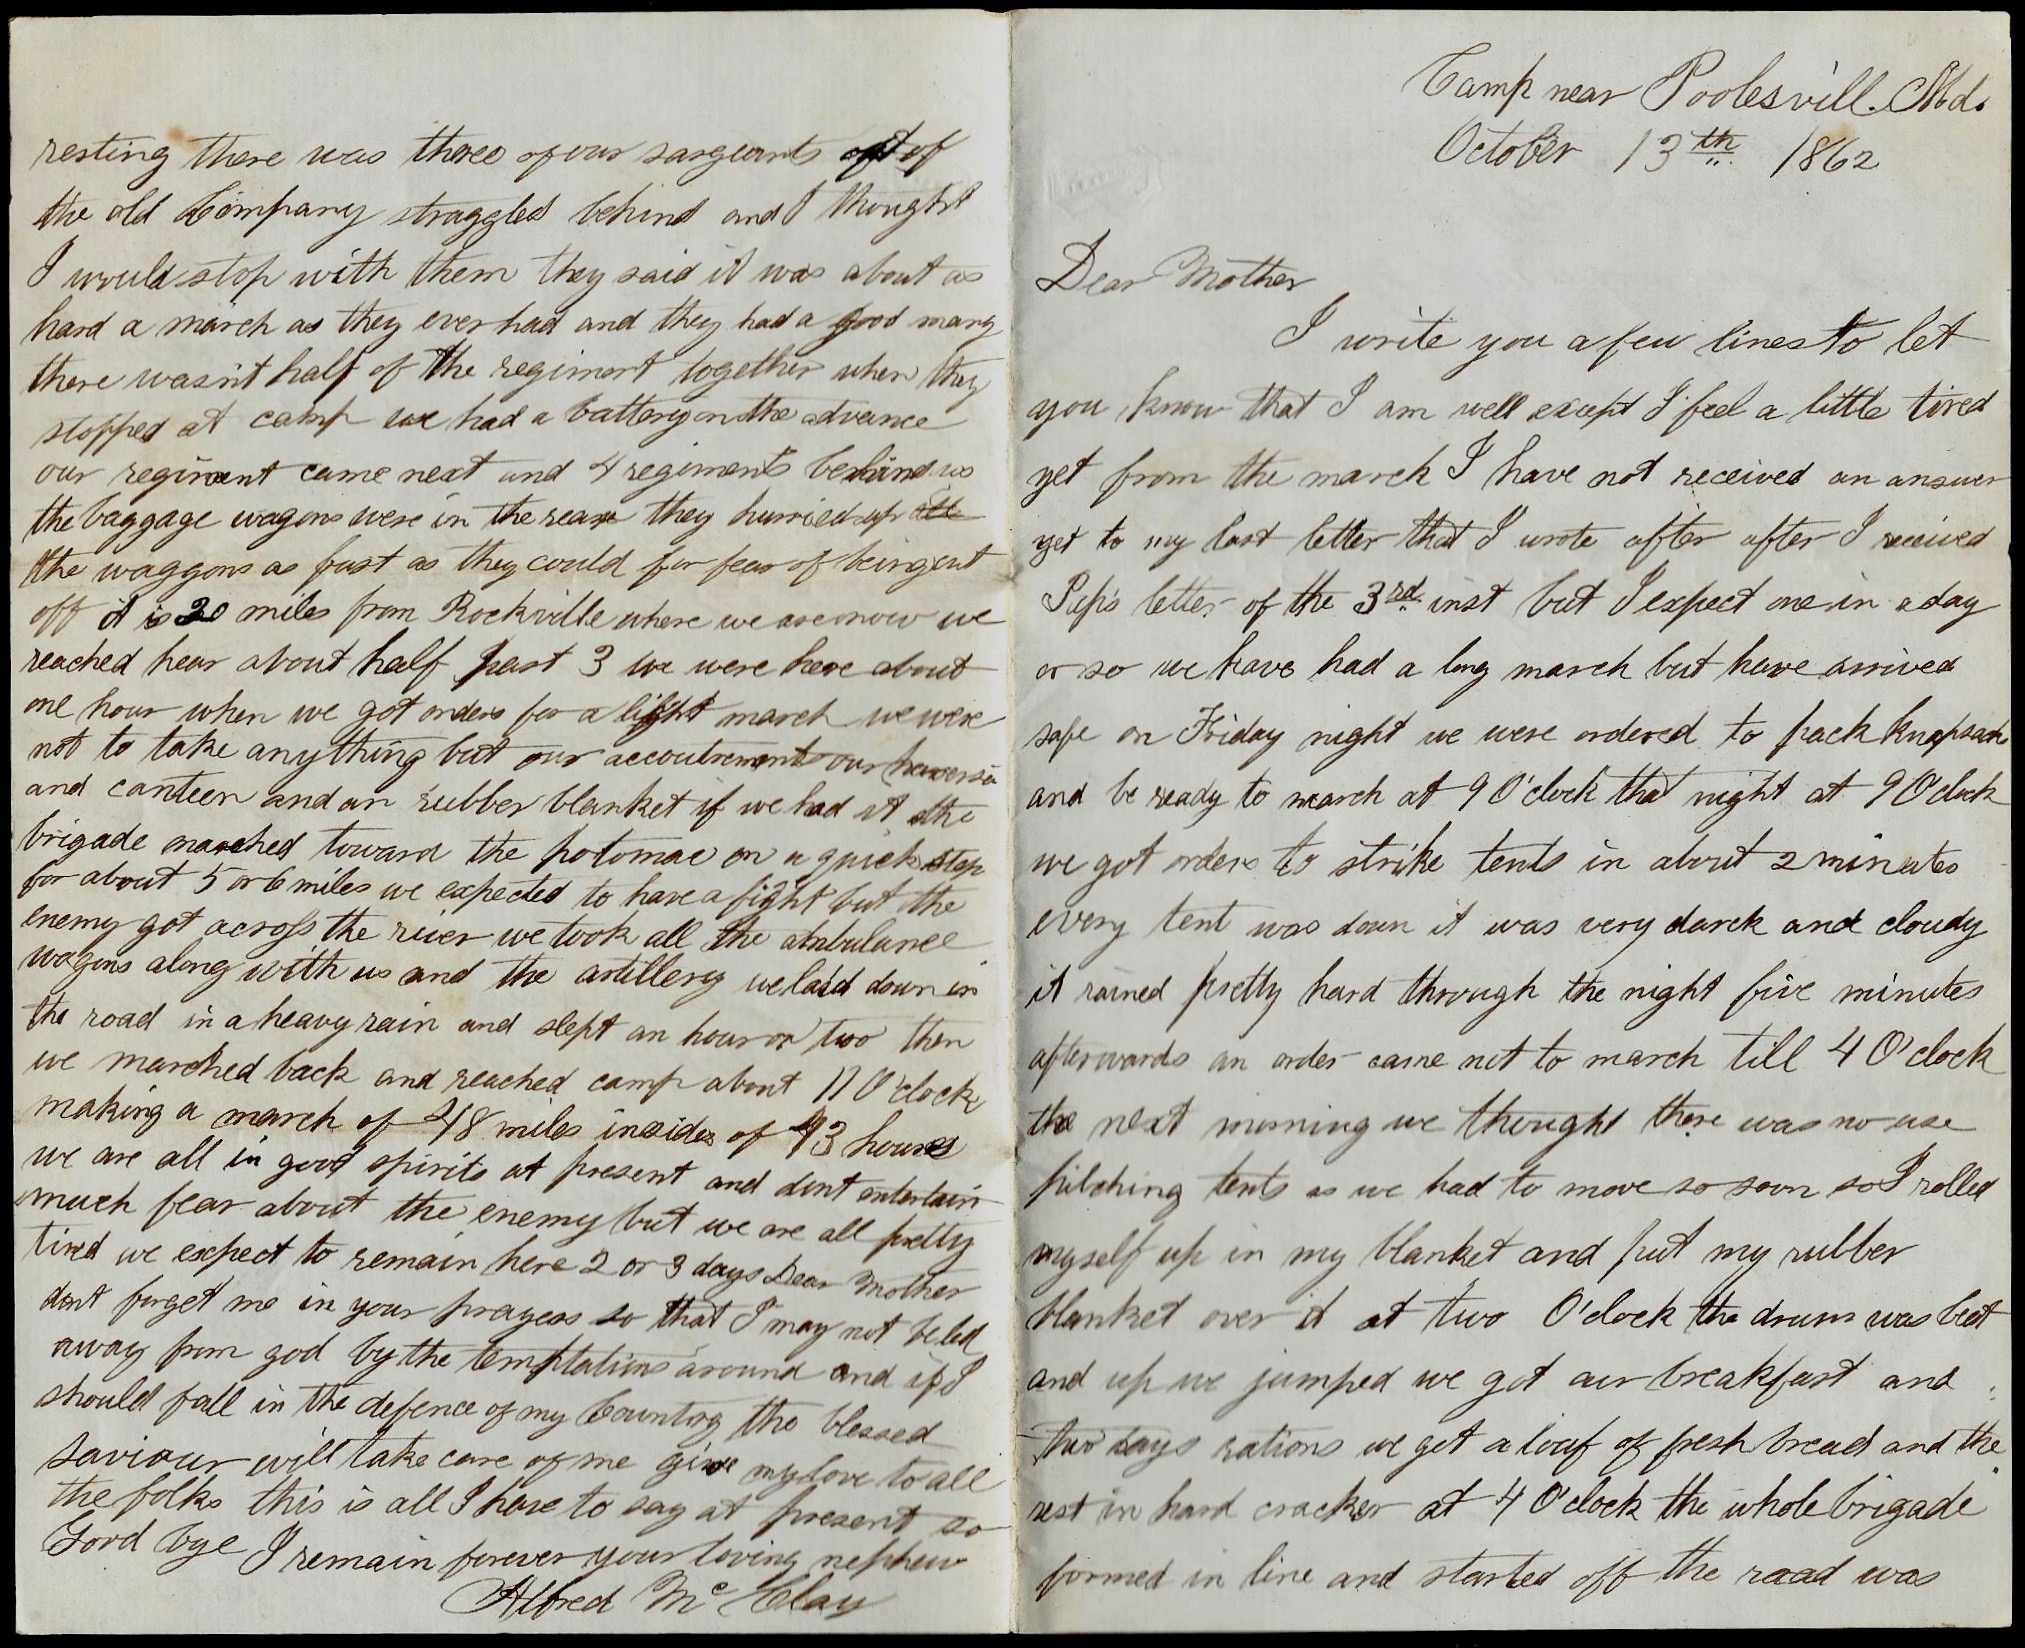 Camp near Poolesvill. Md.
October 13th 1862
Dear Mother
I write you a few lines to let
you know that I am well except I feel a little tired
yet from the march I have not received an answer
yet to my last letter that I wrote after after I received
Pup's letter of the 3rd inst but I expect one in a day
or so we have had a long march but have arrived
safe on Friday night we were ordered to pack knapsacks
and be ready to march at 9 O'clock that night at 9 O'clock
we got orders to strike tents in about 2 minutes
every tent was down it was very darck and cloudy
it rained pretty hard through the night five minutes
afterwards an order came not to march till 4 O'clock
the next morning we thought there was no use
pitching tents as we had to move so soon so I rolled
myself up in my blanket and put my rubber
blanket over it at two O'clock the drum was beat
and up we jumped we got our breakfast and
two days rations we got a loaf of fresh bread and the
rest in hard cracker at 4 O'clock the whole brigade
formed in line and started off the road was
resting there was three of our sargeants out of
the old Company straggled behind and I thought
I would stop with them they said it was about as
hard a march as they ever had and they had a good many
there wasn't half of the regiment together when they
stopped at camp we had a battery on the advance
our regiment came next and 4 regiments behind us
the baggage wagons were in the rear they hurried up all
the waggons as fast as they could for fear of being cut
off it is 20 miles from Rockville where we are now we
reached hear about half past 3 we were here about
one hour when we got orders for a light march we were
not to take anything but our accoutrements our haversa
and canteen and an rubber blanket if we had it the
brigade marched toward the potomac on a quick step
for about 5 or 6 miles we expected to have a fight but the
enemy got across the river we took all the ambulance
wagons along with us and the artillery we laid down in
the road in a heavy rain and slept an hour or two then
we marched back and reached camp about 11 O'clock
making a march of 48 miles insides of 43 hours
we are all in good spirits at present and dont entertain
much fear about the enemy but we are all pretty
tired we expect to remain here 2 or 3 days Dear Mother
dont forget me in your prayers so that I may not be led
away from god by the temptations around and if I
should fall in the defence of my Country the blessed
saviour will take care of me give my love to all
the folks this is all I have to say at present so
Good bye I remain forever your loving nephew
Alfred McClay